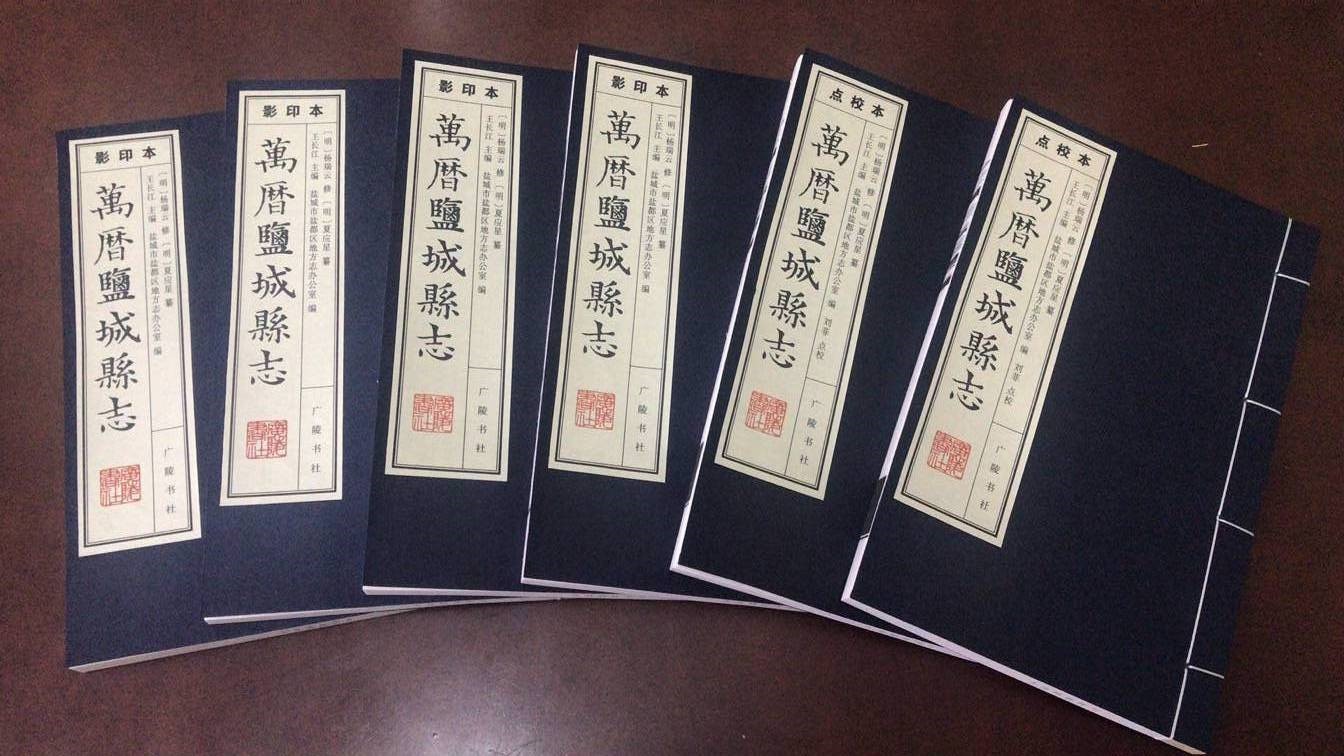 影印本
萬暦鹽城縣志
〔明〕杨瑞云 修 〔明〕夏应星 纂
王长江 主编 盐城市盐都区地方志办公室 编
广陵书社
影印本
萬暦鹽城縣志
〔明〕杨瑞云 修 〔明〕夏应星 纂
王长江 主编 盐城市盐都区地方志办公室 编
广陵书社
影印本
萬暦鹽城縣志
〔明〕杨瑞云 修 〔明〕夏应星 纂
王长江 主编 盐城市盐都区地方志办公室 编
广陵书社
影印本
萬暦鹽城縣志
〔明〕杨瑞云 修 〔明〕夏应星 纂
王长江 主编 盐城市盐都区地方志办公室 编
广陵书社
点校本
萬暦鹽城縣志
〔明〕杨瑞云 修 〔明〕夏应星 纂
王长江 主编 盐城市盐都区地方志办公室 编 刘菲 点校
广陵书社
点校本
萬暦鹽城縣志
〔明〕杨瑞云 修 〔明〕夏应星 纂
王长江 主编 盐城市盐都区地方志办公室 编 刘菲 点校
广陵书社